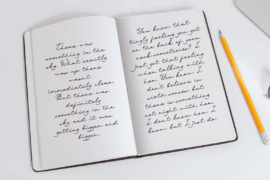 There was
something in the
sky. What exactly
was up there
wasn't
immediately clear.
But there was
definitely
something in the
sky and it was
getting bigger and
bigger.
You know that
tingly feeling you get
on the back of your
neck sometimes? I
just got that feeling
when talking with
her. You know I
don't believe in
sixth senses, but
there is something
not right with her.
I don't know how I
know, but I just do.